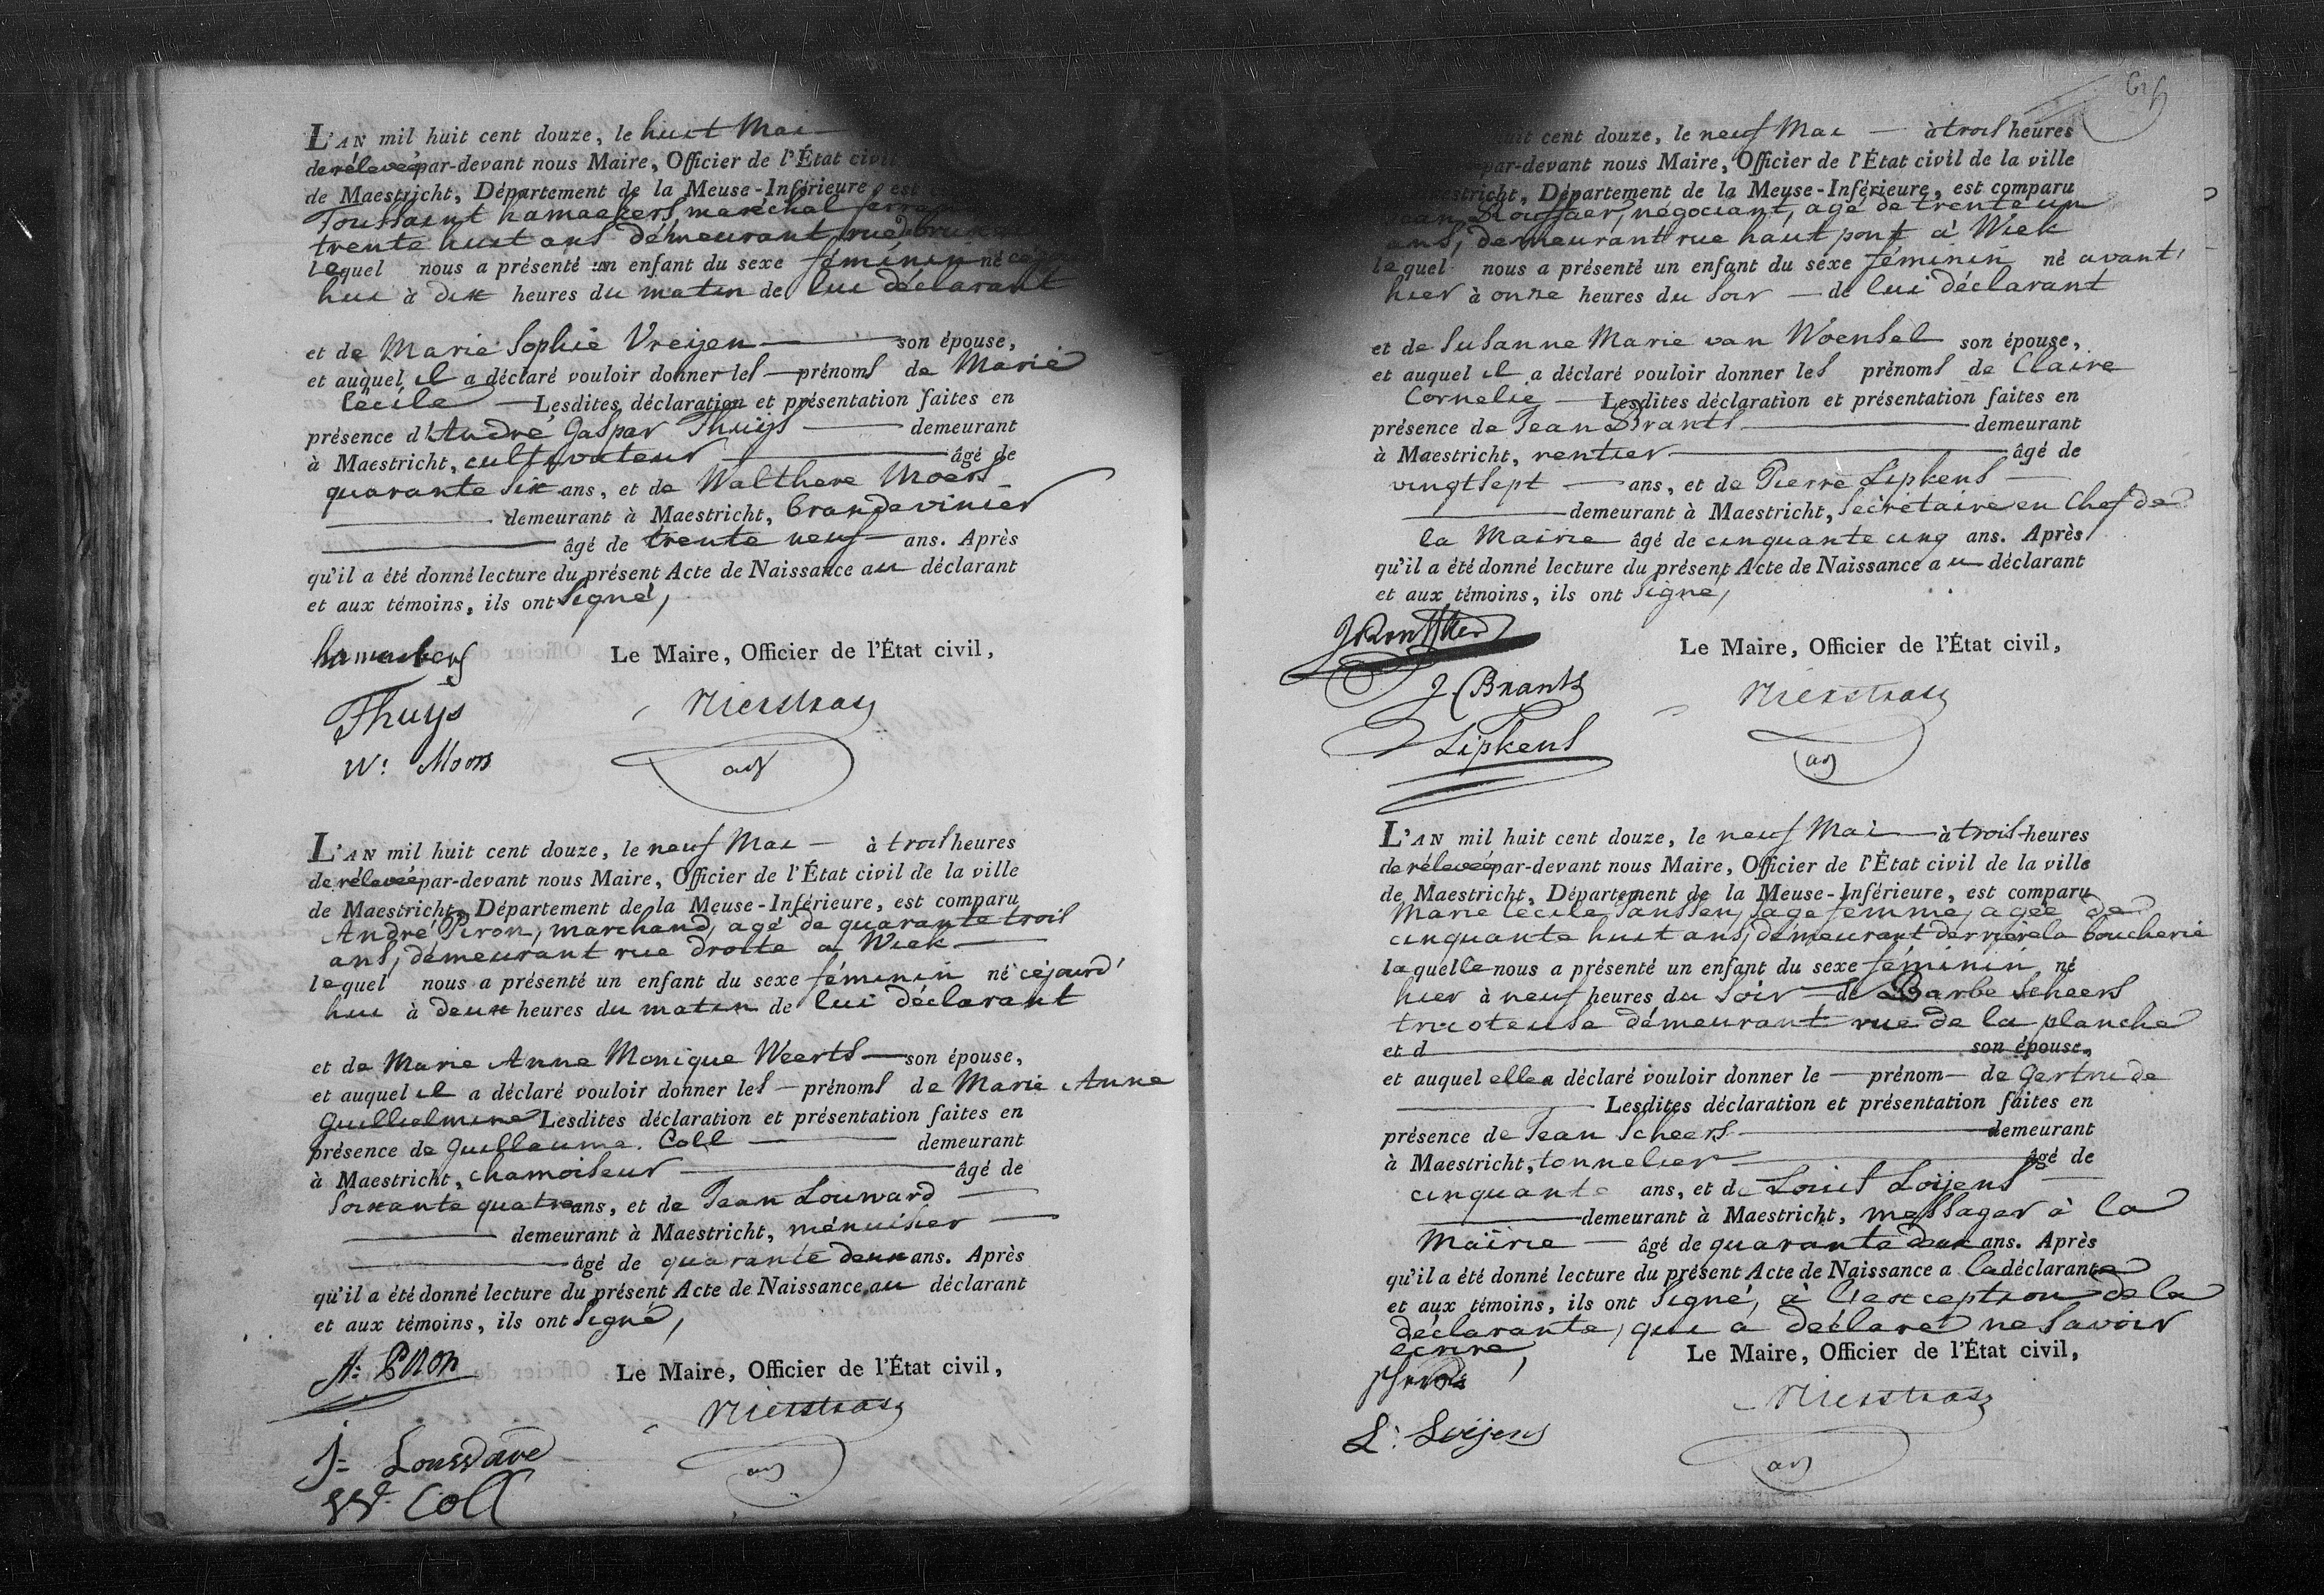 L'AN mil huit cent douze, le huit Mai
de rélevée par-devant nous Maire, Officier de l'État civil
de Maestricht, Département de la Meuse-Inférieure, est
Toussaint hamaekers, maréchal
trente huit ans démeurant rue
lequel nous a présenté un enfant du sexe féminin né
hui à dix heures du matin de lui déclarant
et de Marie Sophie Vreijen son épouse,
et auquel il a déclaré vouloir donner les prénoms de Marie
Cécile Lesdites déclaration et présentation faites en
présence d'André Gaspar Thuijs demeurant
à Maestricht, cultivateur âgé de
quarante six ans, et de Walthere Moers
demeurant à Maestricht, brandevinier
âgé de trente neuf ans. Après
qu'il a été donné lecture du présent Acte de Naissance au déclarant
et aux témoins, ils ont signé,
hamaekers Le Maire, Officier de l'État civil,
Thuijs Nierstrasz
W: Moors
L'AN mil huit cent douze, le neuf Mai à trois heures
de rélevée par-devant nous Maire, Officier de l'État civil de la ville
de Maestricht, Département de la Meuse-Inférieure, est comparu
André Piron, marchand, agé de quarante trois
ans, démeurant rue droite a Wiek
lequel nous a présenté un enfant du sexe féminin né cejourd'
hui à deux heures du matin de lui déclarant
et de Marie Anne Monique Weerts son épouse,
et auquel il a déclaré vouloir donner les prénoms de Marie Anne
Guillielmine Lesdites déclaration et présentation faites en
présence de Guillaume Coll demeurant
à Maestricht, chamoiseur âgé de
soixante quatre ans, et de Jean Louward
demeurant à Maestricht, ménuisier
âgé de quarante deux ans. Après
qu'il a été donné lecture du présent Acte de Naissance au déclarant
et aux témoins, ils ont signé,
A: Piron Le Maire, Officier de l'État civil,
Nierstrasz
J= Louward
W. Coll
cent douze, le neuf Mai à trois heures
par-devant nous Maire, Officier de l'État civil de la ville
Département de la Meuse-Inférieure, est comparu
négociant, agé de trente un
ans, demeurant rue haut pont à Wiek
lequel nous a présenté un enfant du sexe féminin né avant
hier à onze heures du soir de lui déclarant
et de Susanne Marie van Woensel son épouse,
et auquel il a déclaré vouloir donner les prénoms de Claire
Cornelie Lesdites déclaration et présentation faites en
présence de Jean Brants demeurant
à Maestricht, rentier âgé de
vingt sept ans, et de Pierre Lipkens
demeurant à Maestricht, sécrétaire en Chef de
la Mairie âgé de cinquante cinq ans. Après
qu'il a été donné lecture du présent Acte de Naissance au déclarant
et aux témoins, ils ont signé,
Le Maire, Officier de l'État civil,
J. Brants Nierstrasz
Lipkens
L'AN mil huit cent douze, le neuf Mai à trois heures
de rélevée par-devant nous Maire, Officier de l'État civil de la ville
de Maestricht, Département de la Meuse-Inférieure, est comparu
Marie Cécile Janssen, sage femme, agée de
cinquante huit ans, démeurant derriere la boucherie
laquelle nous a présenté un enfant du sexe féminin né
hier à neuf heures du soir de Barbe Scheers
tricoteuse démeurant rue de la planche
et d son épouse,
et auquel elle a déclaré vouloir donner le prénom de Gertrude
Lesdites déclaration et présentation faites en
présence de Jean Scheers demeurant
à Maestricht, tonnelier âgé de
cinquante ans, et de Louis Loijens
demeurant à Maestricht, messager à la
Mairie âgé de quarante deux ans. Après
qu'il a été donné lecture du présent Acte de Naissance a la déclarante
et aux témoins, ils ont signé, à l'exception de la
déclarante, qui a déclaré ne savoir
écrire, Le Maire, Officier de l'État civil,
Nierstrasz
L: Loijens